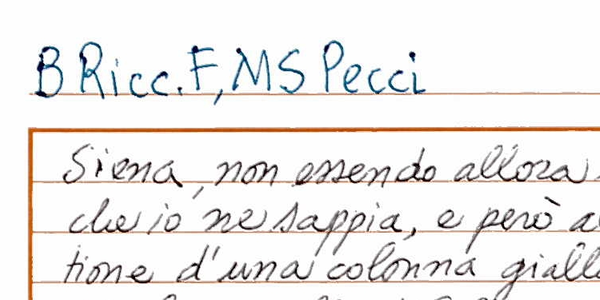 B Ricc. F, MS Pecci
Siena, non essendo allora
che io ne sappia, e però a
tione d'una colonna giall